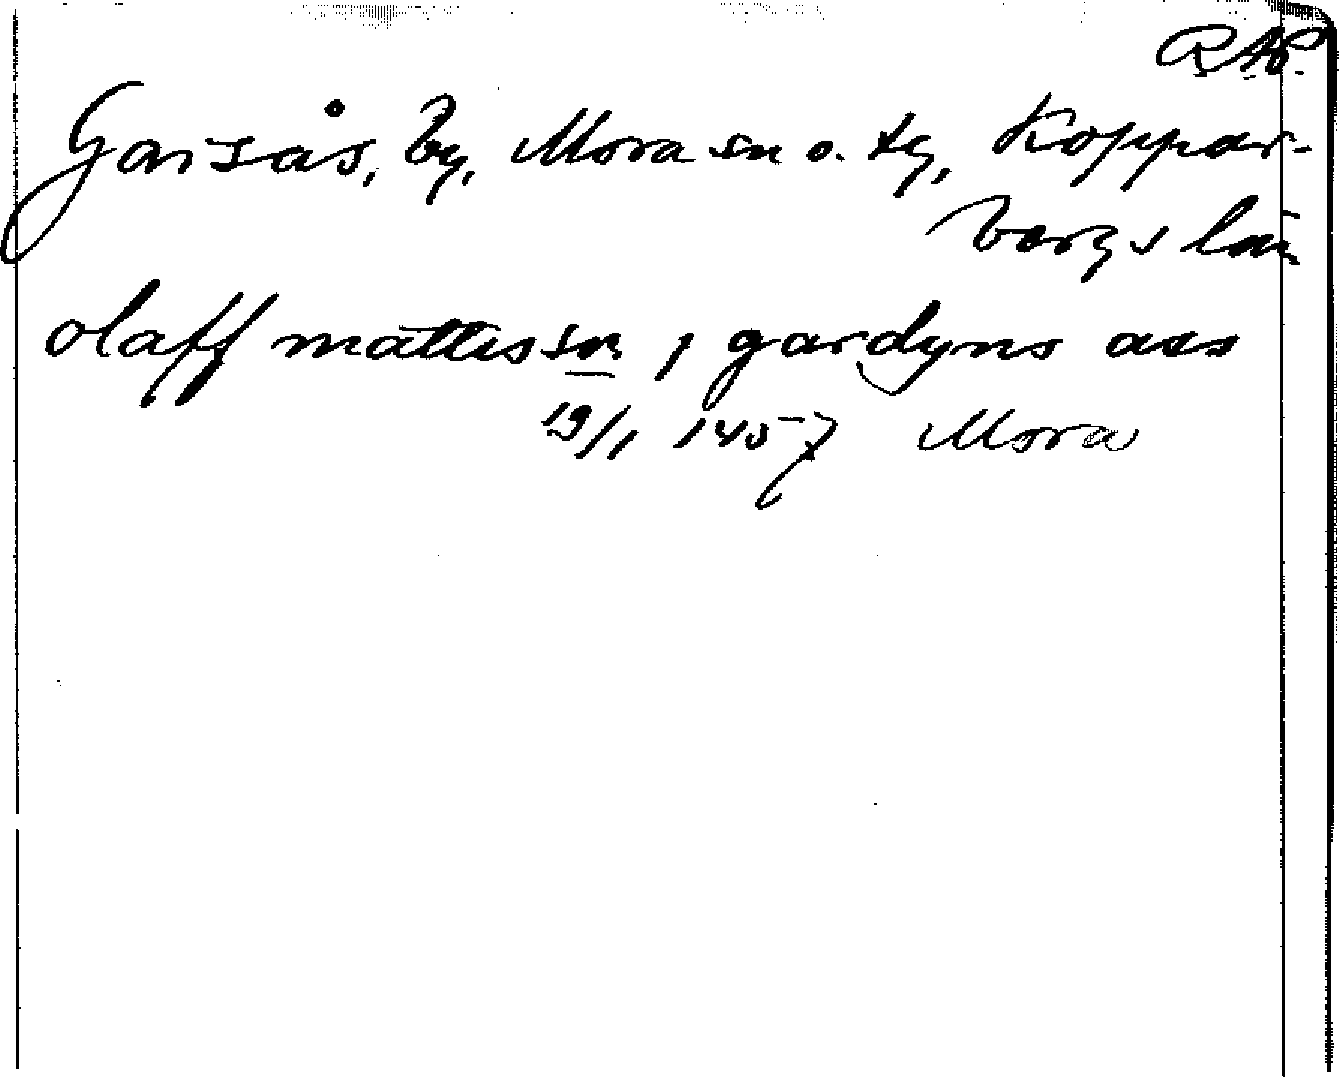 RAP.
Garsås, by, Mora sn o. tg, Koppar-
bergs län
olaff mattisson j gardyns aas
19/1 1457 Mora